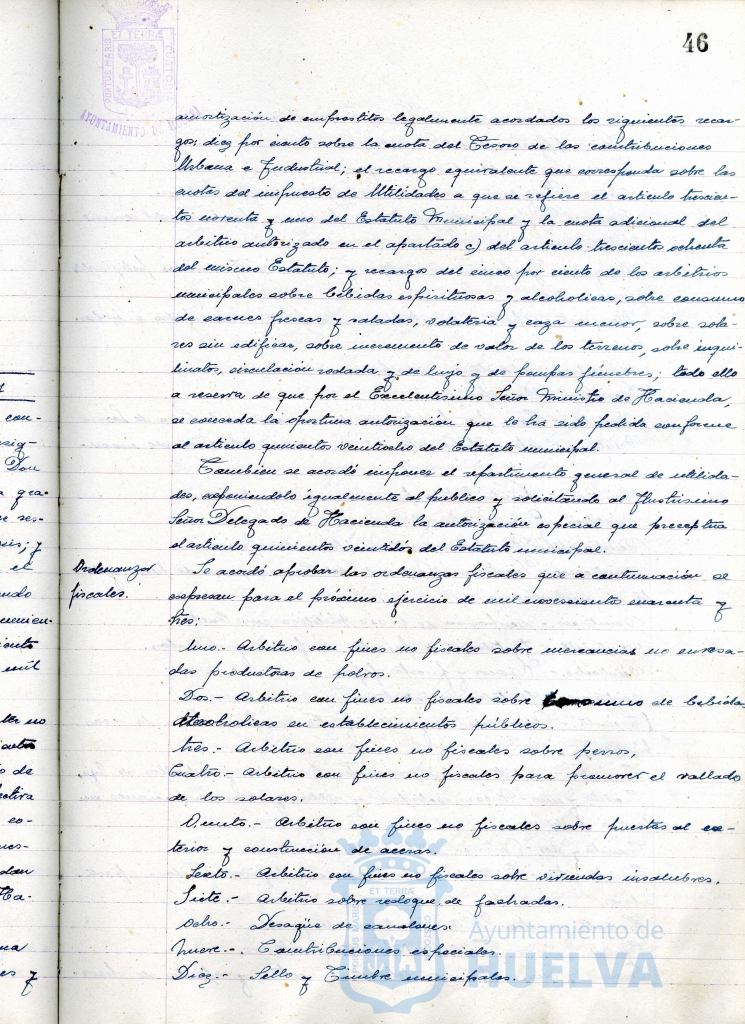 46
PORTUS MARIS ET TERRÆ CUSTODIA
AYUNTAMIENTO DE
amortización de empréstitos legalmente acordados los siguientes recar-
gos, diez por ciento sobre la cuota del Tesoro de las contribuciones
Urbana e Industrial; el recargo equivalente que corresponda sobre las
cuotas del impuesto de Utilidades a que se refiere el articulo trescien-
tos noventa y uno del Estatuto Municipal y la cuota adicional del
arbitrio autorizado en el apartado c) del articulo trescientos ochenta
del mismo Estatuto; y recargos del cinco por ciento de los arbitrios
municipales sobre bebidas espirituosas y alcoholicas, sobre consumo
de carnes frescas y saladas, volateria y caza menor, sobre sola-
res sin edificar, sobre incremento de valor de los terrenos, sobre inqui-
linatos, circulación rodada y de lujo y de pompas fúnebres; todo ello
a reserva de que por el Excelentisimo Señor Ministro de Hacienda,
se conceda la oportuna autorización que le ha sido pedida conforme
al articulo quinientos veintiocho del Estatuto municipal.
Tambien se acordó imponer el repartimiento general de utilida-
des, exponiendolo igualmente al publico y solicitando al Ilustrisimo
Señor Delegado de Hacienda la autorización especial que preceptua
el articulo quinientos veintidós del Estatuto municipal.
Ordenanzas
fiscales.
Se acordó aprobar las ordenanzas fiscales que a continuación se
expresan para el próximo ejercicio de mil novecientos cuarenta y
tres:
Uno.- Arbitrio con fines no fiscales sobre mercancias no envasa-
das productoras de polvos.
Dos.- Arbitrio con fines no fiscales sobre consumo de bebidas
alcoholicas en establecimientos públicos.
tres.- Arbitrio con fines no fiscales sobre perros,
Cuatro.- Arbitrio con fines no fiscales para promover el vallado
de los solares.
Quinto.- Arbitrio con fines no fiscales sobre puertas al ex-
terior y construcción de aceras.
Sexto.- Arbitrio con fines no fiscales sobre viviendas insalubres.
Siete.- Arbitrio sobre revoque de fachadas.
Ocho.- Desagüe de canalones.
Nueve.- Contribuciones especiales.
Diez.- Sello y Timbre municipales.
Ayuntamiento de
HUELVA